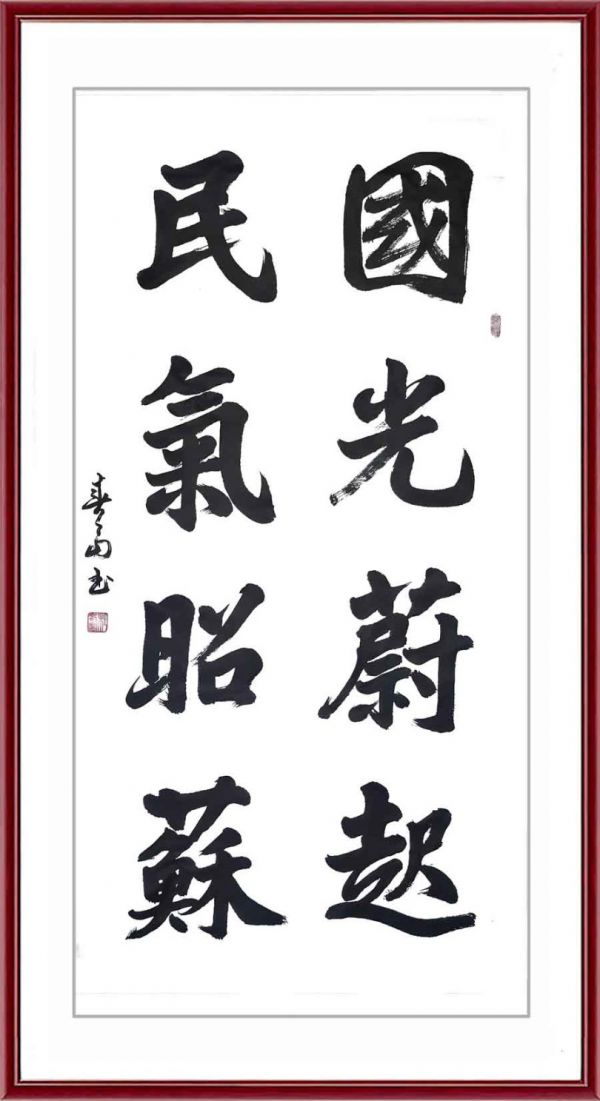 國光蔚起
民氣昭蘇